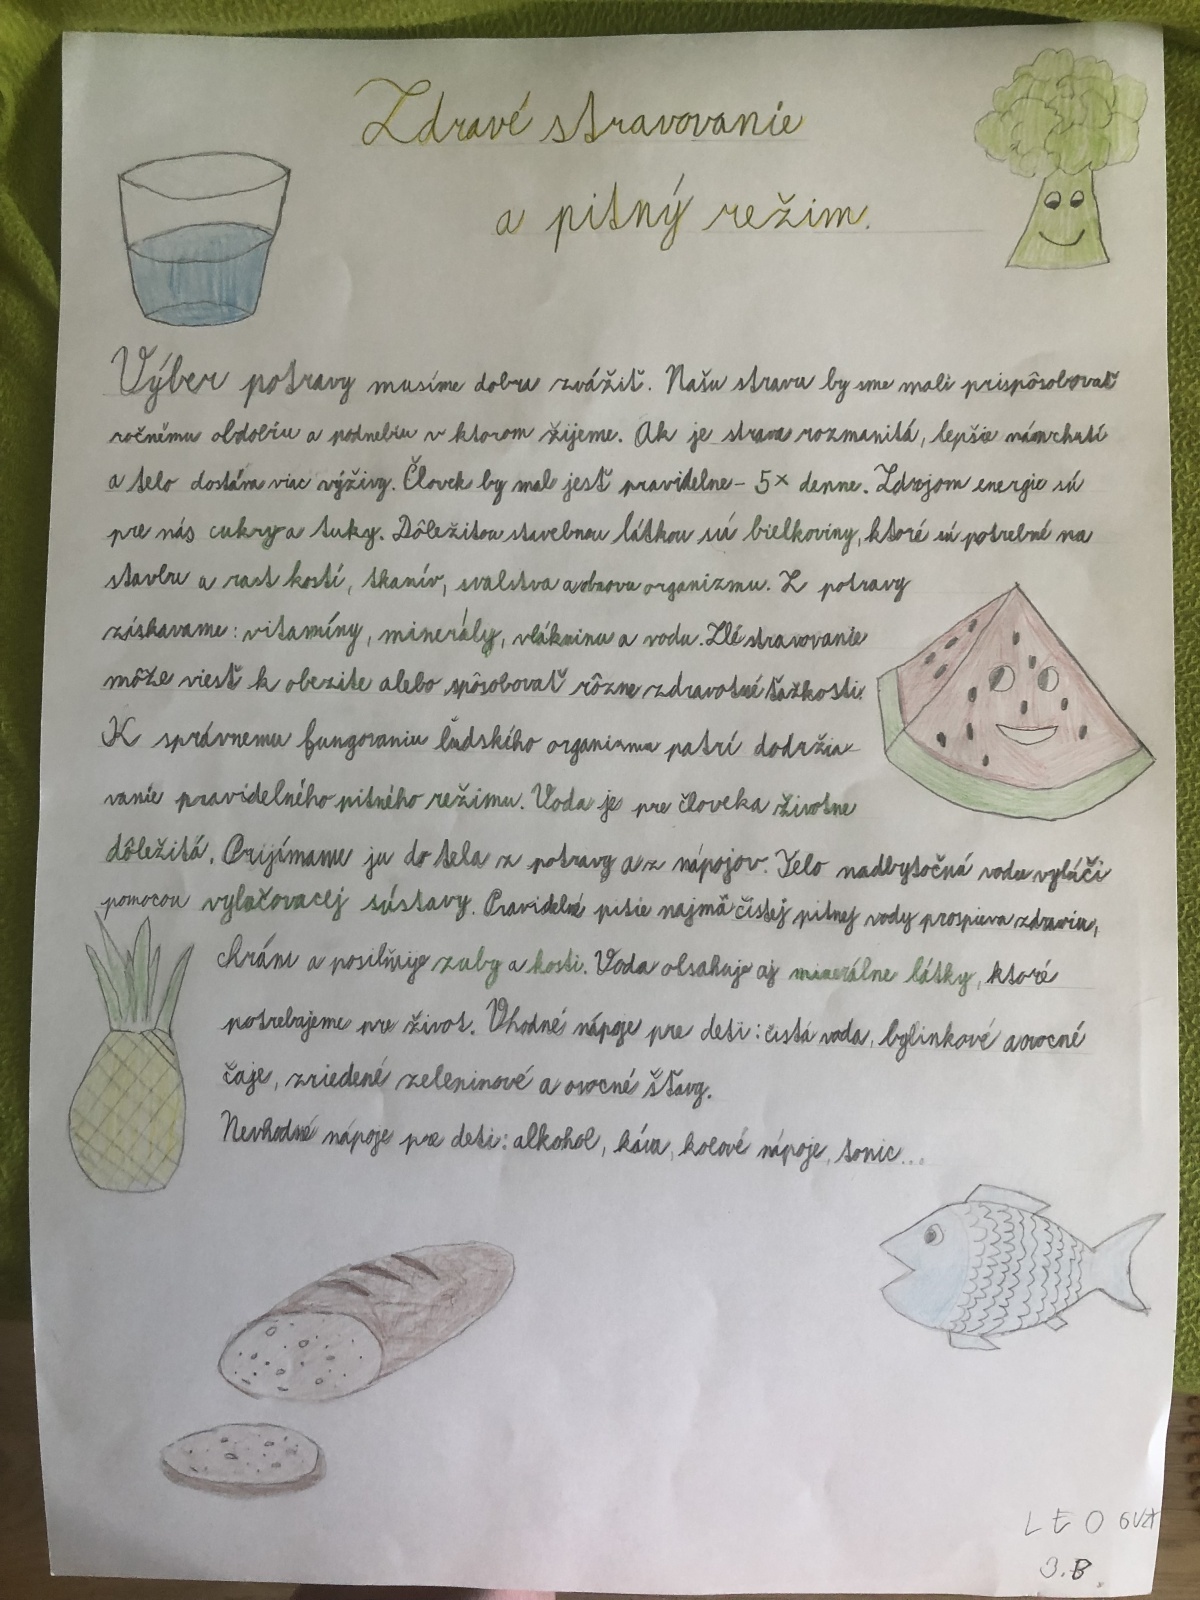 Zdravé stravovanie
a pitný režim.
Výber potravy musíme dobre zvážiť. Našu stravu by sme mali prispôsobovať
ročnému obdobiu a podnebiu v ktorom žijeme. Ak je strava rozmanitá, lepšie nám chutí
a telo dostáva viac výživy. Človek by mal jesť pravidelne - 5x denne. Zdrojom energie sú
pre nás cukry a tuky. Dôležitou stavebnou látkou sú bielkoviny, ktoré sú potrebné na
stavbu a rast kostí, tkanív, svalstva a obnovu organizmu. Z potravy
získavame: vitamíny, minerály, vlákninu a vodu. Zlé stravovanie
môže viesť k obezite alebo spôsobovať rôzne zdravotné ťažkosti.
K správnemu fungovaniu ľudského organizmu patrí dodržia-
vanie pravidelného pitného režimu. Voda je pre človeka životne
dôležitá. Prijímame ju do tela z potravy a z nápojov. Telo nadbytočnú vodu vylúči
pomocou vylučovacej sústavy. Pravidelné pitie najmä čistej pitnej vody prospieva zdraviu,
chráni a posilňuje zuby a kosti. Voda obsahuje aj minerálne látky, ktoré
potrebujeme pre život. Vhodné nápoje pre deti: čistá voda, bylinkové a ovocné
čaje, zriedené zeleninové a ovocné šťavy.
Nevhodné nápoje pre deti: alkohol, káva, kolové nápoje, tonic...
LEO
3.B.